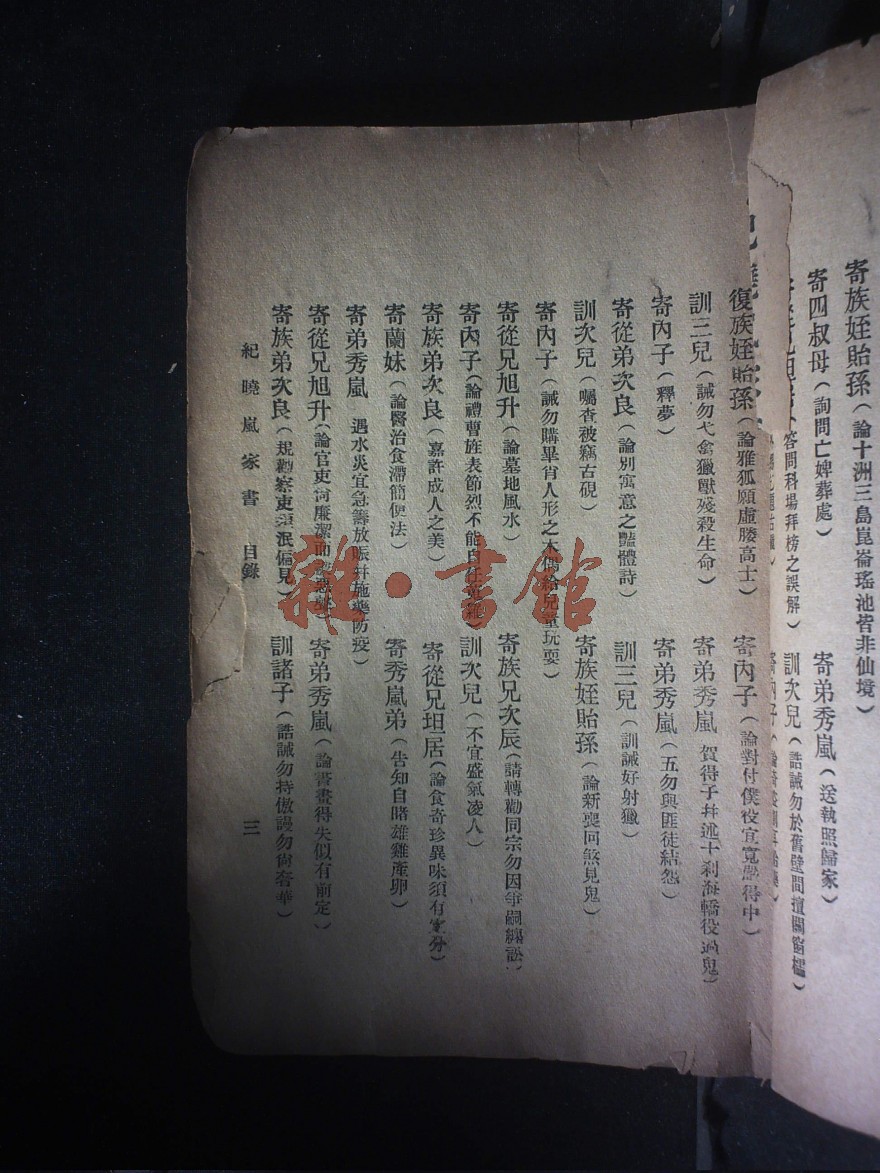 寄族姪貽孫（論十洲三島崑崙瑤池皆非仙境）
寄四叔母（詢問亡婢葬處）
寄弟秀嵐（送執照歸家）
答問科場拜榜之誤解）
訓次兒（誥誡勿於舊壁間擅開窗櫺）
寄內子（
復族姪貽孫（論雅狐願虛勝高士）
寄內子（論對付僕役宜寬嚴得中）
訓三兒（誡勿弋禽獵獸殘殺生命）
寄弟秀嵐 賀得子并述十剎海轎役遇鬼）
寄內子（釋夢）
寄弟秀嵐（五勿與匪徒結怨）
寄從弟次良（論別寓意之豔體詩）
訓三兒（訓誡好射獵）
訓次兒（囑查被竊古硯）
寄族姪貽孫（論新喪回煞見鬼）
寄內子（誡勿購畢肖人形之木偶給兒童玩耍）
寄從兄旭升（論墓地風水）
寄族兄次辰（請轉勸同宗勿因爭嗣纏訟）
寄內子（論禮曹旌表節烈不能自任
訓次兒（不宜盛氣凌人）
寄族弟次良（嘉許成人之美）
寄從兄坦居（論食奇珍異味須有定分）
寄蘭妹（論醫治食滯簡便法）
寄秀嵐弟（告知自賭雄雞產卵）
寄弟秀嵐 遇水災宜急籌放賑并施藥防疫）
寄從兄旭升（論官吏
寄弟秀嵐（論書畫得失似有前定）
寄族弟次良（規勸察吏須泯偏見）
訓諸子（誥誡勿持傲謾勿尙奢華）
紀曉嵐家書 目錄 三
雜·書館